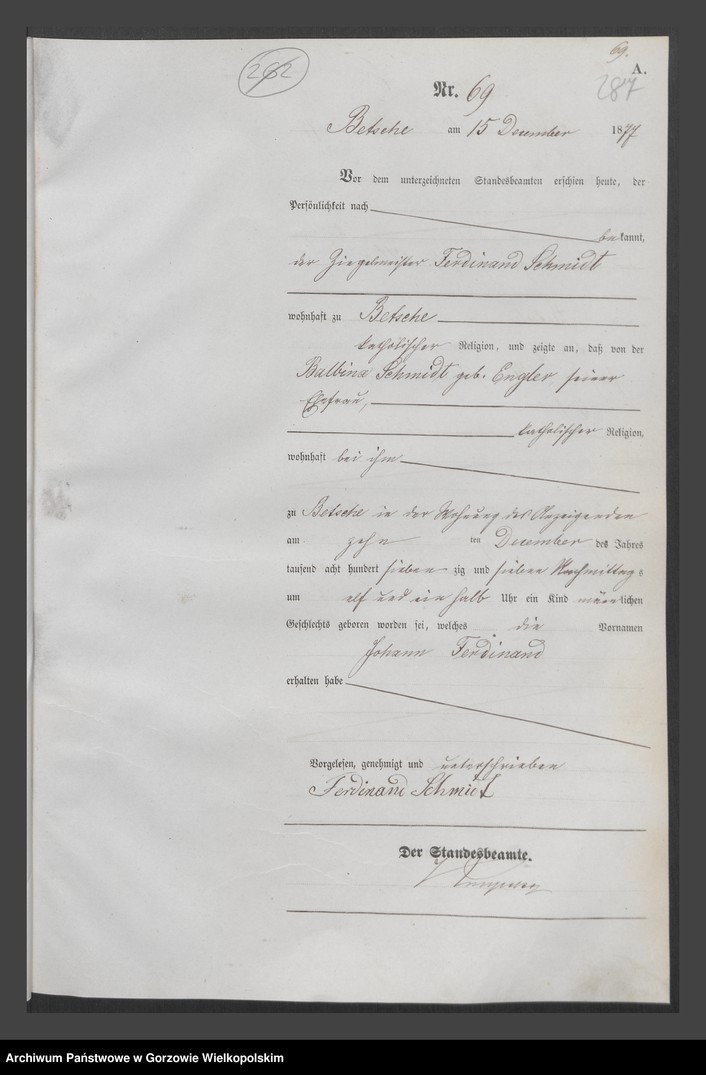 69.
262
A.
287
Nr. 69
Betsche am 15 December 1877
Vor dem unterzeichneten Standesbeamten erschien heute, der
Persönlichkeit nach
bekannt,
der Ziegelmeister Ferdinand Schmidt
wohnhaft zu Betsche
katholischer Religion, und zeigte an, daß von der
Balbina Schmidt geb. Engler seiner
Ehefrau,
katholischer Religion,
wohnhaft bei ihm
zu Betsche in der Wohnung des Anzeigenden
am zehn ten December des Jahres
tausend acht hundert sieben zig und sieben Nachmittags
um elf und ein halb Uhr ein Kind männlichen
Geschlechts geboren worden sei, welches die Vornamen
Johann Ferdinand
erhalten habe
Vorgelesen, genehmigt und unterschrieben
Ferdinand Schmidt
Der Standesbeamte.
Archiwum Państwowe w Gorzowie Wielkopolskim